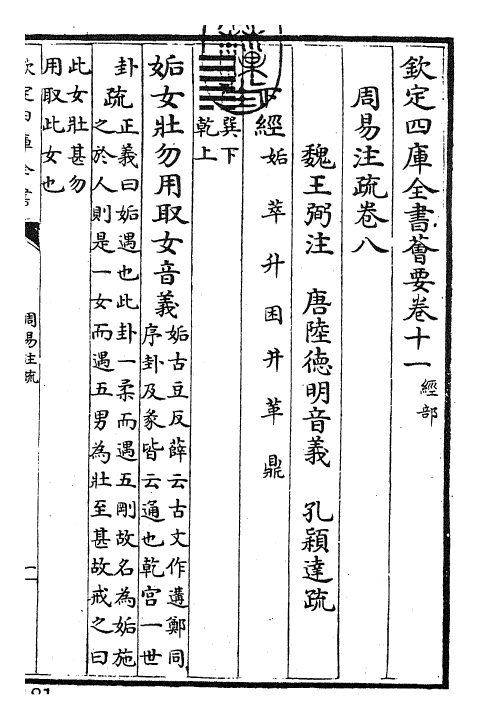 欽定四庫全書薈要卷十一 經部
周易注疏卷八
魏王弼注 唐陸德明音義 孔穎達疏
下經 姤 萃 升 困 井 革 鼎
巽下
乾上
姤女壯勿用取女音義
姤古豆反薛云古文作遘鄭同
序卦及彖皆云遇也乾宫一世
卦
疏正義曰姤遇也此卦一柔而遇五剛故名為姤施
之於人則是一女而遇五男為壯至甚故戒之曰
此女壯甚勿
用取此女也
欽定四庫全書
周易注疏